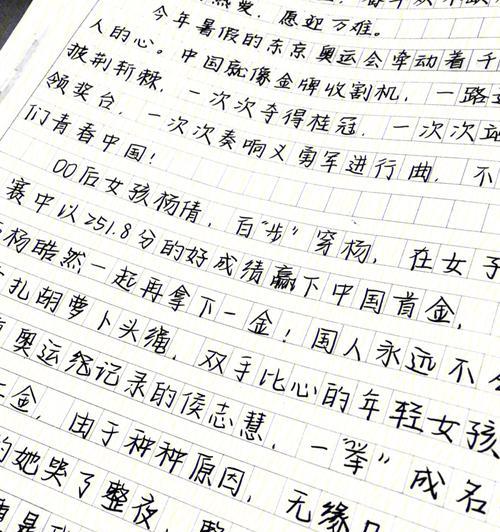 热爱，愿迎万难。
今年暑假的东京奥运会牵动着千
人的心。中国就像金牌收割机，一路
披荆斩棘，一次次夺得桂冠，一次次
领奖台，一次次奏响义勇军进行曲，不
们青春中国！
00后女孩杨倩，百“步”穿杨，在女子
赛中以251.8分的好成绩赢下中国首金，
杨皓然一起再拿下一金！国人永远不
扎胡萝卜头绳，双手比心的年轻女孩
奥运纪记录的侯志慧，一“举”成名
金，由于种种原因，无缘
的她哭了整夜，整